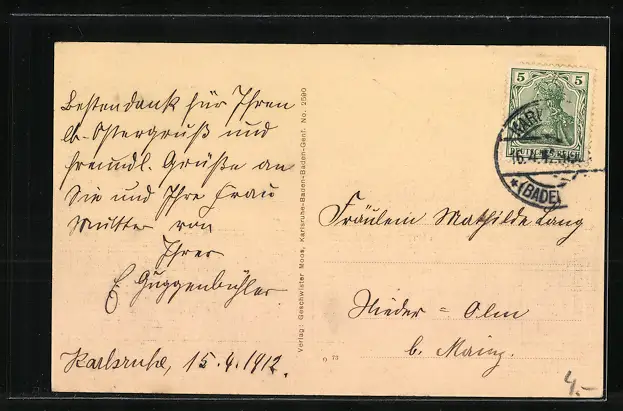 Bestendank für Ihren
lb. Ostergruß und
freundl. Grüße an
Sie und Ihre Frau
Mutter von
Ihrer
E Guggenbühler.
Karlsruhe, 15.4.1912.
Verlag: Geschwister Moos, Karlsruhe-Baden-Baden-Genf. No. 2590
5 5
DEUTSCHES REICH
KARL
16.4.12.
*(BADEN)
Fräulein Mathilde Lang
Nieder=Olm
b. Mainz.
4.-